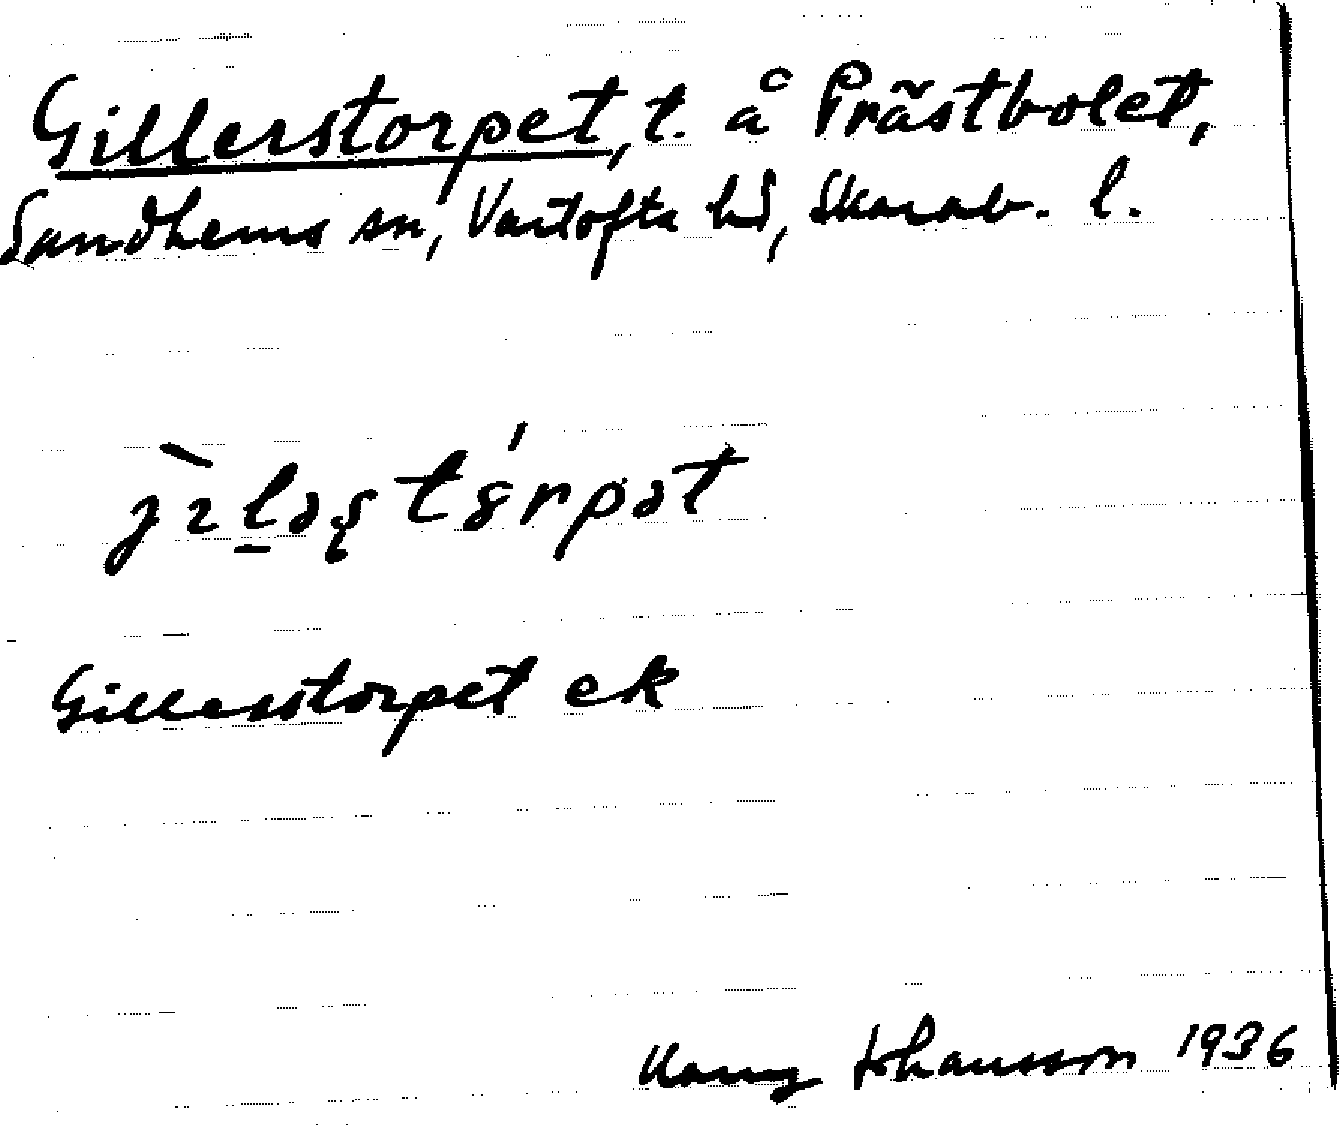 Gillerstorpet, t. å Prästbolet,
Sandhems sn, Vartofta hd, Skarab. l.
Gillerstorpet ek
Johansson 1936